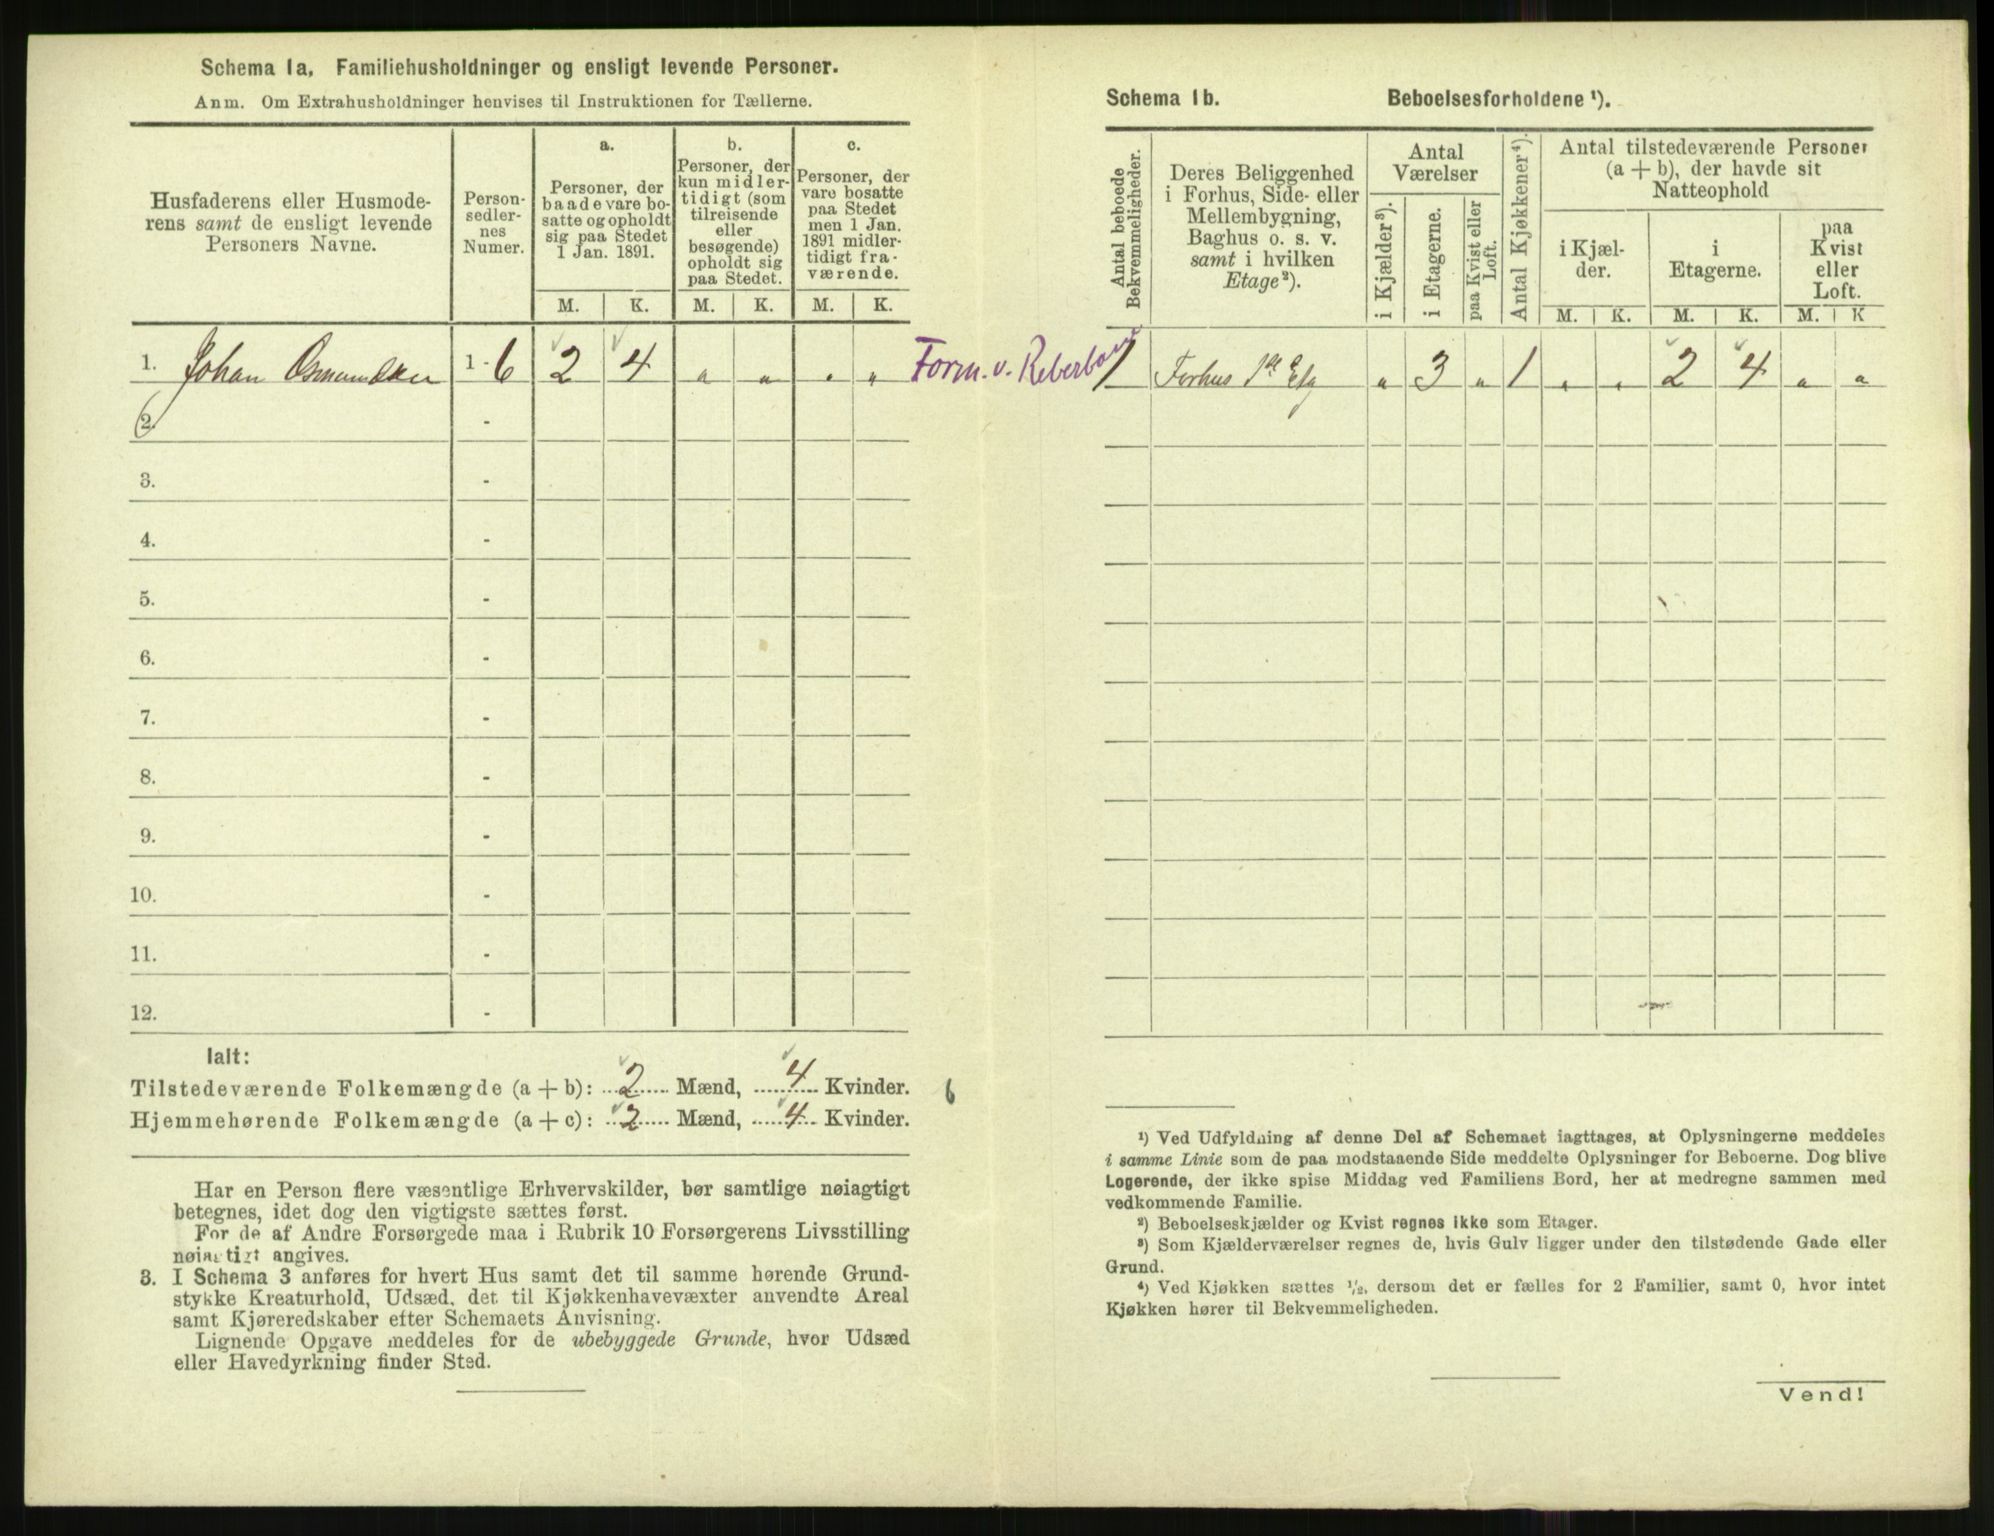 Schema 1a, Familiehusholdninger og ensligt levende Personer.
Anm. Om Extrahusholdninger henvises til Instruktionen for Tællerne.
Husfaderens eller Husmode-
rens samt de ensligt levende
Personers Navne.
Person-
sedler-
nes
Numer.
a.
Personer, der
baade vare bo-
satte og opholdt
sig paa Stedet
1 Jan. 1891.
b.
Personer, der
kun midler-
tidigt (som
tilreisende
eller
besøgende)
opholdt sig
paa Stedet.
c.
Personer, der
vare bosatte
paa Stedet
men 1 Jan.
1891 midler-
tidigt fra-
værende.
M. K. M. K. M. K.
1. Johan Osmundsen 1 - 6 2 4 „ „ „ „
2. -
3. -
4. -
5. -
6. -
7. -
8. -
9. -
10. -
11. -
12. -
Ialt:
Tilstedeværende Folkemængde (a + b): 2 Mænd, 4 Kvinder. 6
Hjemmehørende Folkemængde (a + c): 2 Mænd, 4 Kvinder.
Har en Person flere væsentlige Erhvervskilder, bør samtlige nøiagtigt
betegnes, idet dog den vigtigste sættes først.
For de af Andre Forsørgede maa i Rubrik 10 Forsørgerens Livsstilling
nøiagtigt angives.
3. I Schema 3 anføres for hvert Hus samt det til samme hørende Grund-
stykke Kreaturhold, Udsæd, det til Kjøkkenhavevæxter anvendte Areal
samt Kjøreredskaber efter Schemaets Anvisning.
Lignende Opgave meddeles for de ubebyggede Grunde, hvor Udsæd
eller Havedyrkning finder Sted.
Schema 1b. Beboelsesforholdene ¹).
Antal beboede
Bekvemmeligheder.
Deres Beliggenhed
i Forhus, Side- eller
Mellembygning,
Baghus o. s. v.
samt i hvilken
Etage ²).
Antal
Værelser
i Kjælder ³).
i Etagerne.
paa Kvist eller
Loft.
Antal Kjøkkener ⁴).
Antal tilstedeværende Personer
(a + b), der havde sit
Natteophold
i Kjæl-
der.
i
Etagerne.
paa
Kvist
eller
Loft.
M. K. M. K. M. K
Form. v. Reberbane
1 Forhus 1ste Etg „ 3 „ 1 „ „ 2 4 „ „
¹) Ved Udfyldning af denne Del af Schemaet iagttages, at Oplysningerne meddeles
i samme Linie som de paa modstaaende Side meddelte Oplysninger for Beboerne. Dog blive
Logerende, der ikke spise Middag ved Familiens Bord, her at medregne sammen med
vedkommende Familie.
²) Beboelseskjælder og Kvist regnes ikke som Etager.
³) Som Kjælderværelser regnes de, hvis Gulv ligger under den tilstødende Gade eller
Grund.
⁴) Ved Kjøkken sættes ¹/₂, dersom det er fælles for 2 Familier, samt 0, hvor intet
Kjøkken hører til Bekvemmeligheden.
Vend!